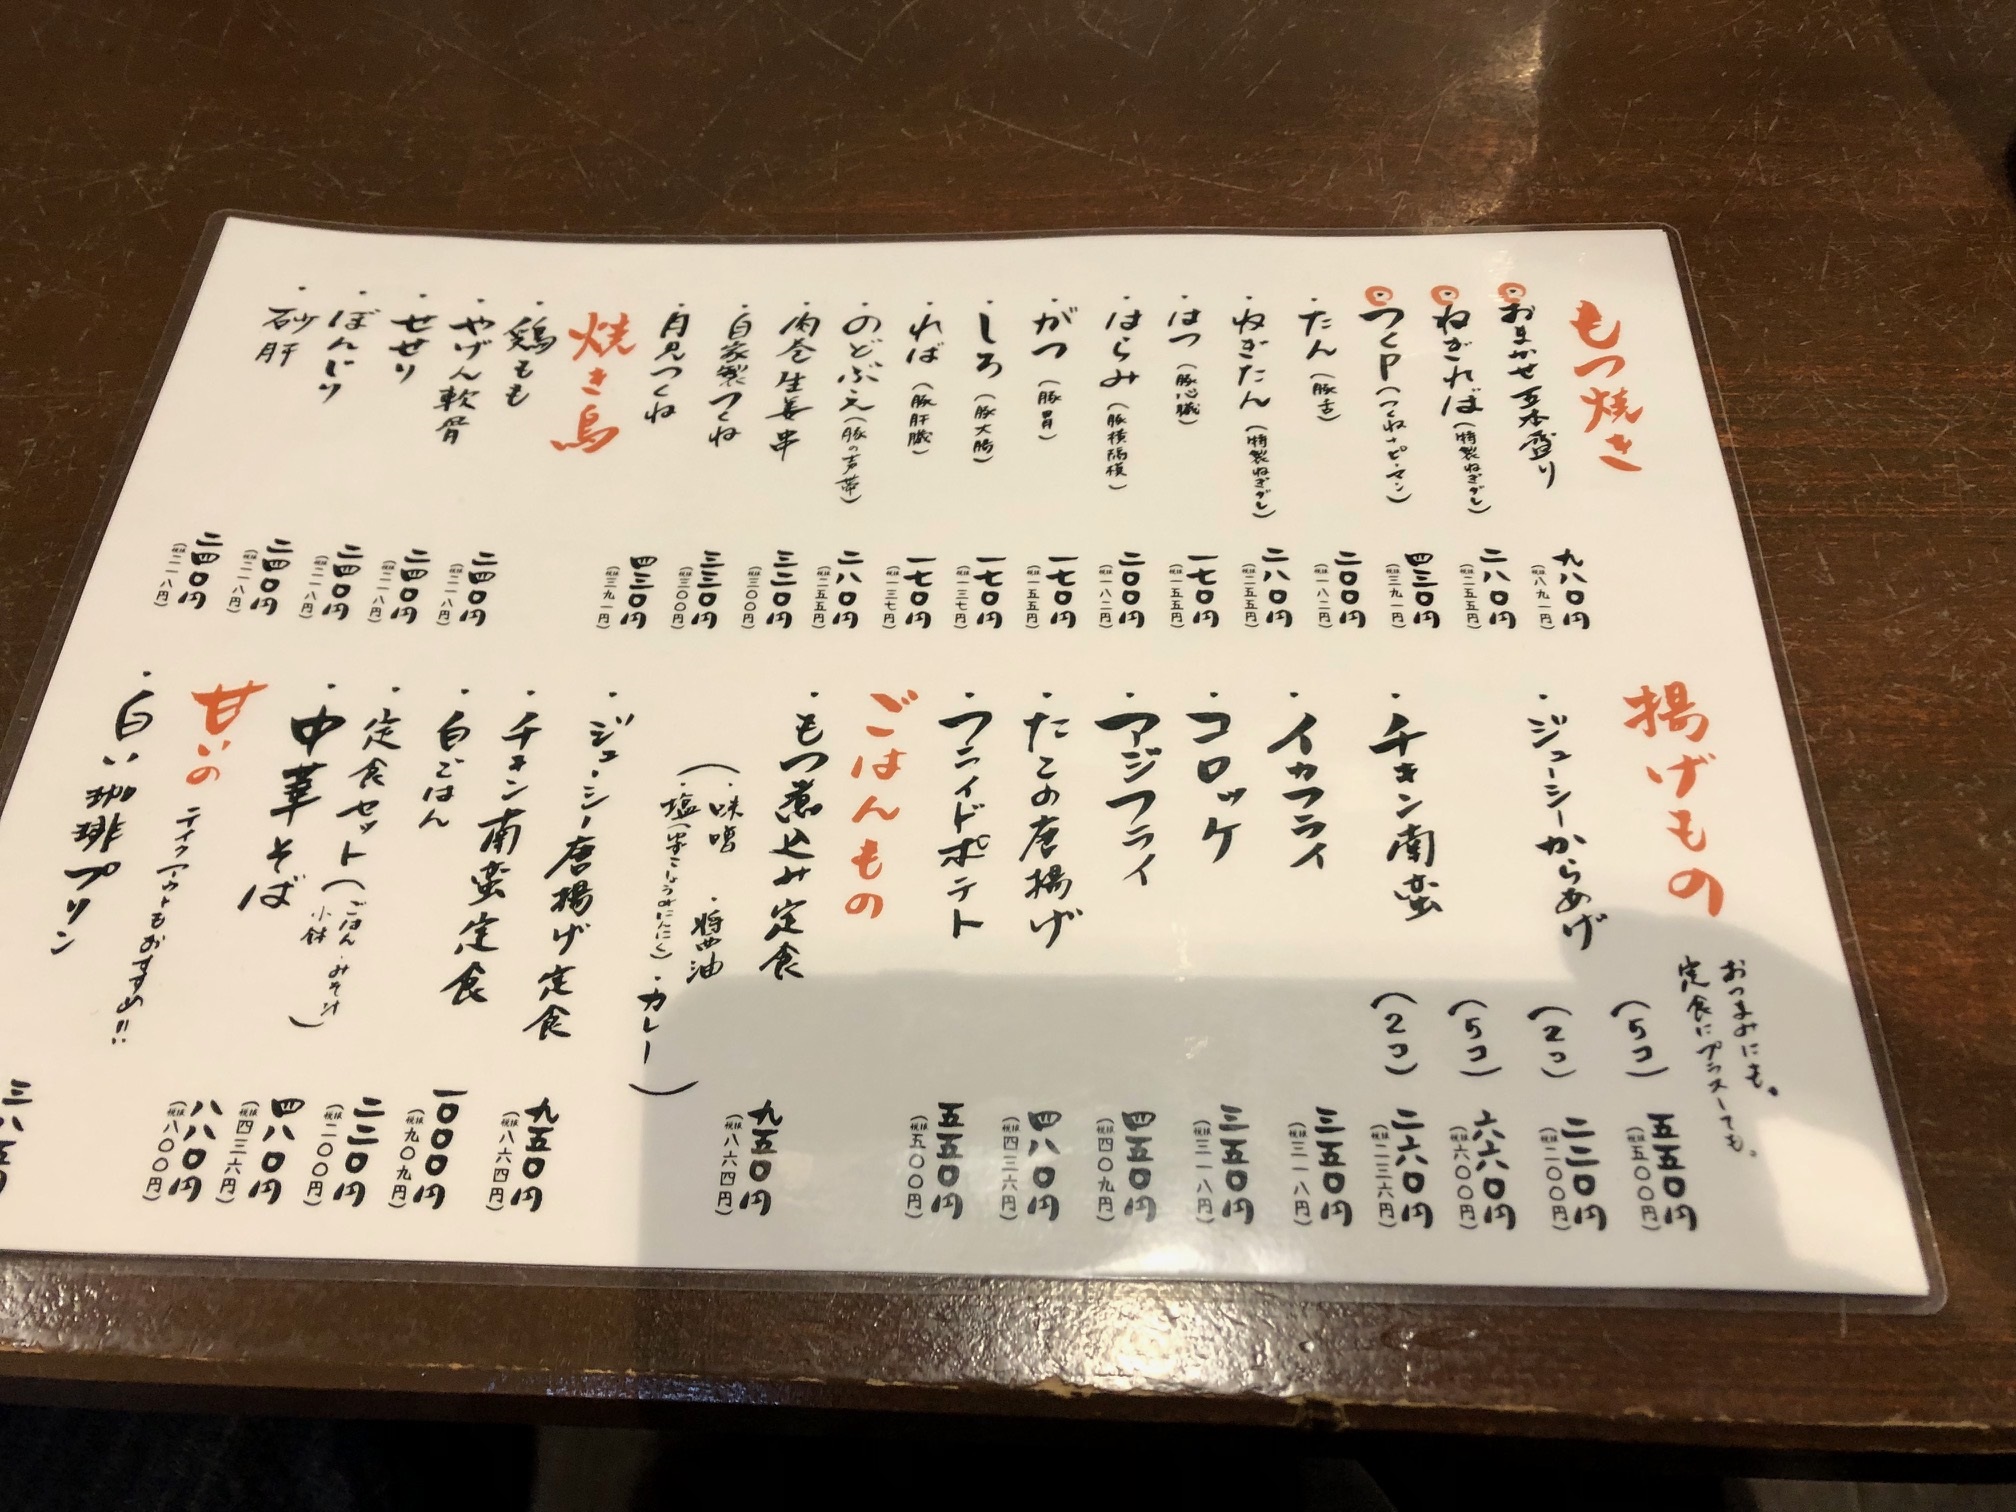 もつ焼き
おまかせ五本盛り 九八〇円
(税抜八九一円)
ねぎれば(特製ねぎダレ) 二八〇円
(税抜二五五円)
つくP(つくね+ピーマン) 四三〇円
(税抜三九一円)
・たん(豚舌) 二〇〇円
(税抜一八二円)
・ねぎたん(特製ねぎダレ) 二八〇円
(税抜二五五円)
・はつ(豚心臓) 一七〇円
(税抜一五五円)
・はらみ(豚横隔膜) 二〇〇円
(税抜一八二円)
・がつ(豚胃) 一七〇円
(税抜一五五円)
・しろ(豚大腸) 一七〇円
(税抜一三七円)
・れば(豚肝臓) 一七〇円
(税抜一三七円)
・のどぶえ(豚の声帯) 二八〇円
(税抜二五五円)
・肉巻生姜串 三三〇円
(税抜三〇〇円)
・自家製つくね 三三〇円
(税抜三〇〇円)
・月見つくね 四三〇円
(税抜三九一円)
焼き鳥
・鶏もも 二四〇円
(税抜二一八円)
・やげん軟骨 二四〇円
(税抜二一八円)
・せせり 二四〇円
(税抜二一八円)
・ぼんじり 二四〇円
(税抜二一八円)
・砂肝 二四〇円
(税抜二一八円)
揚げもの
おつまみにも。
定食にプラスしても。
・ジューシーからあげ (5コ) 五五〇円
(税抜五〇〇円)
(2コ) 二二〇円
(税抜二〇〇円)
・チキン南蛮 (5コ) 六六〇円
(税抜六〇〇円)
(2コ) 二六〇円
(税抜二三六円)
・イカフライ 三五〇円
(税抜三一八円)
・コロッケ 三五〇円
(税抜三一八円)
・アジフライ 四五〇円
(税抜四〇九円)
・たこの唐揚げ 四八〇円
(税抜四三六円)
・フライドポテト 五五〇円
(税抜五〇〇円)
ごはんもの
・もつ煮込み定食 九五〇円
(税抜八六四円)
(・味噌 ・醤油
・塩(ゆずこしょうorにんにく) ・カレー)
・ジューシー唐揚げ定食 九五〇円
(税抜八六四円)
・チキン南蛮定食 一〇〇〇円
(税抜九〇九円)
・白ごはん 二二〇円
(税抜二〇〇円)
・定食セット(ごはん・みそ汁
小鉢) 四八〇円
(税抜四三六円)
・中華そば 八八〇円
(税抜八〇〇円)
甘いの テイクアウトもおすすめ!!
・白い珈琲プリン 三八五円